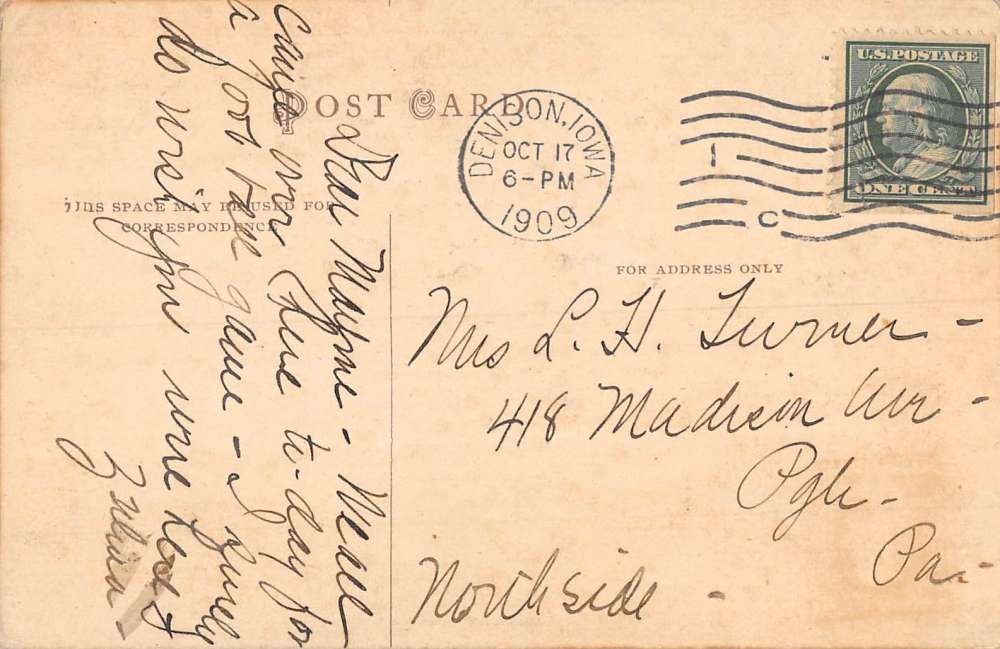 POST CARD
THIS SPACE MAY BE USED FOR
CORRESPONDENCE
Dear Mayme - We all
came over here to-day for
a foot ball game - I surely
do wish you were here
DENISON, IOWA
OCT 17
6-PM
1909
1
C
U.S. POSTAGE
ONE CENT
FOR ADDRESS ONLY
Mrs L. H. Turner -
418 Madison Ave -
Pgh -
Pa -
Northside -